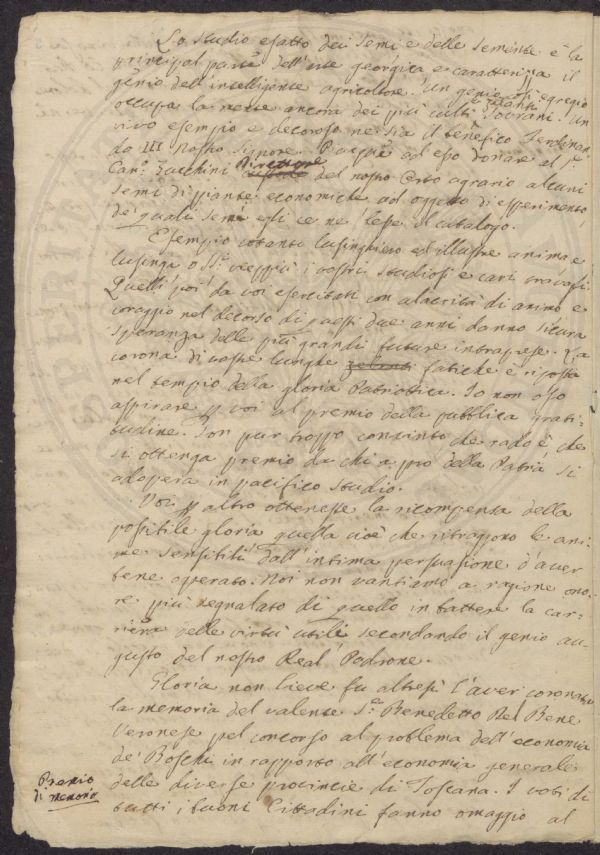 Lo studio esatto dei semi e delle semente è la
principal parte dell'arte georgica e caratterizza il
genio dell'intelligente agricoltore. Un genio sì egregio
occupa la mente ancora dei più culti e zelanti Sovrani. Un
vivo esempio e decoroso ne sia il benefico Ferdinan
do III Nostro Signore. Piacque ad esso donare al Sr.
Can.co Zucchini Direttore del nostro Orto agrario alcuni
semi di piante economiche ad oggetto di esperimento,
de' quali semi egli ce ne lesse il catalogo.
Esempio cotanto lusinghiero ed illustre anima e
lusinga o SS.ri vieppiù i vostri studiosi e cari travagli.
Quelli poi da voi esercitati con alacrità di animo e
coraggio nel decorso di questi due anni danno sicura
speranza delle più grandi future intraprese. La
corona di vostre lunghe zelanti fatiche è riposta
nel tempio della gloria Patriottica. Io non oso
aspirare p voi al premio della pubblica grati-
tudine. Son pur troppo convinto che rado è che
si ottenga premio da chi a pro della Patria si
adopera in pacifico studio.
Voi p altro otteneste la ricompensa della
possibile gloria quella cioè che ritraggono le ani-
me sensibili dall'intima persuasione d'aver
bene operato. Noi non vantiamo a ragione ono-
re più segnalato di quello in battere la car-
riera delle virtù utili secondando il genio au-
gusto del nostro Real Padrone.
Gloria non lieve fu altresì l'aver coronato
la memoria del valente Sr. Benedetto Del Bene
Veronese pel concorso al problema dell'economia
de' Boschi in rapporto all'economia generale
Premio
di memoria
delle diverse provincie di Toscana. I voti di
tutti i buoni Cittadini fanno omaggio al